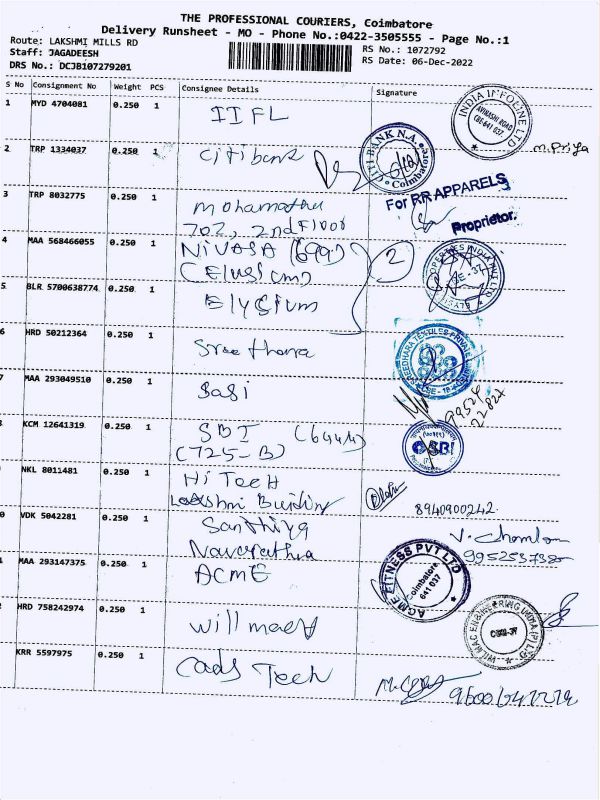 THE PROFESSIONAL COURIERS, Coimbatore
Delivery Runsheet - MO - Phone No.:0422-3505555 - Page No.:1
Route: LAKSHMI MILLS RD
Staff: JAGADEESH
DRS No.: DCJB107279201
RS No.: 1072792
RS Date: 06-Dec-2022
S No Consignment No Weight PCS Consignee Details Signature
1 MYD 4704081 0.250 1 IIFL
INDIA INFOLINE LTD
AVINASHI ROAD
CBE-641 037
M.Priya
2 TRP 1334037 0.250 1 Citibank
CITI BANK N.A.
Coimbatore
3 TRP 8032775 0.250 1
702, 2nd Floor
For RR APPARELS
Proprietor.
4 MAA 568466055 0.250 1 NIVASA (699)
2
5 BLR 5700638774 0.250 1 Elysium
6 HRD 50212364 0.250 1 Sree thara
7 MAA 293049510 0.250 1 Sasi
99524
8 KCM 12641319 0.250 1 SBI (6444)
(725-B)
SBI
NKL 8011481 0.250 1 HiTech
Lakshmi Building
8940900242
0 VDK 5042281 0.250 1 Santhiya
Navarathna
MAA 293147375 0.250 1 ACME
ACME FITNESS PVT LTD
Coimbatore
641 037
2 HRD 758242974 0.250 1 Willmact
WILMAC ENGINEERING INDIA (P) LTD
CBE-37
KRR 5597975 0.250 1 Cads Tech